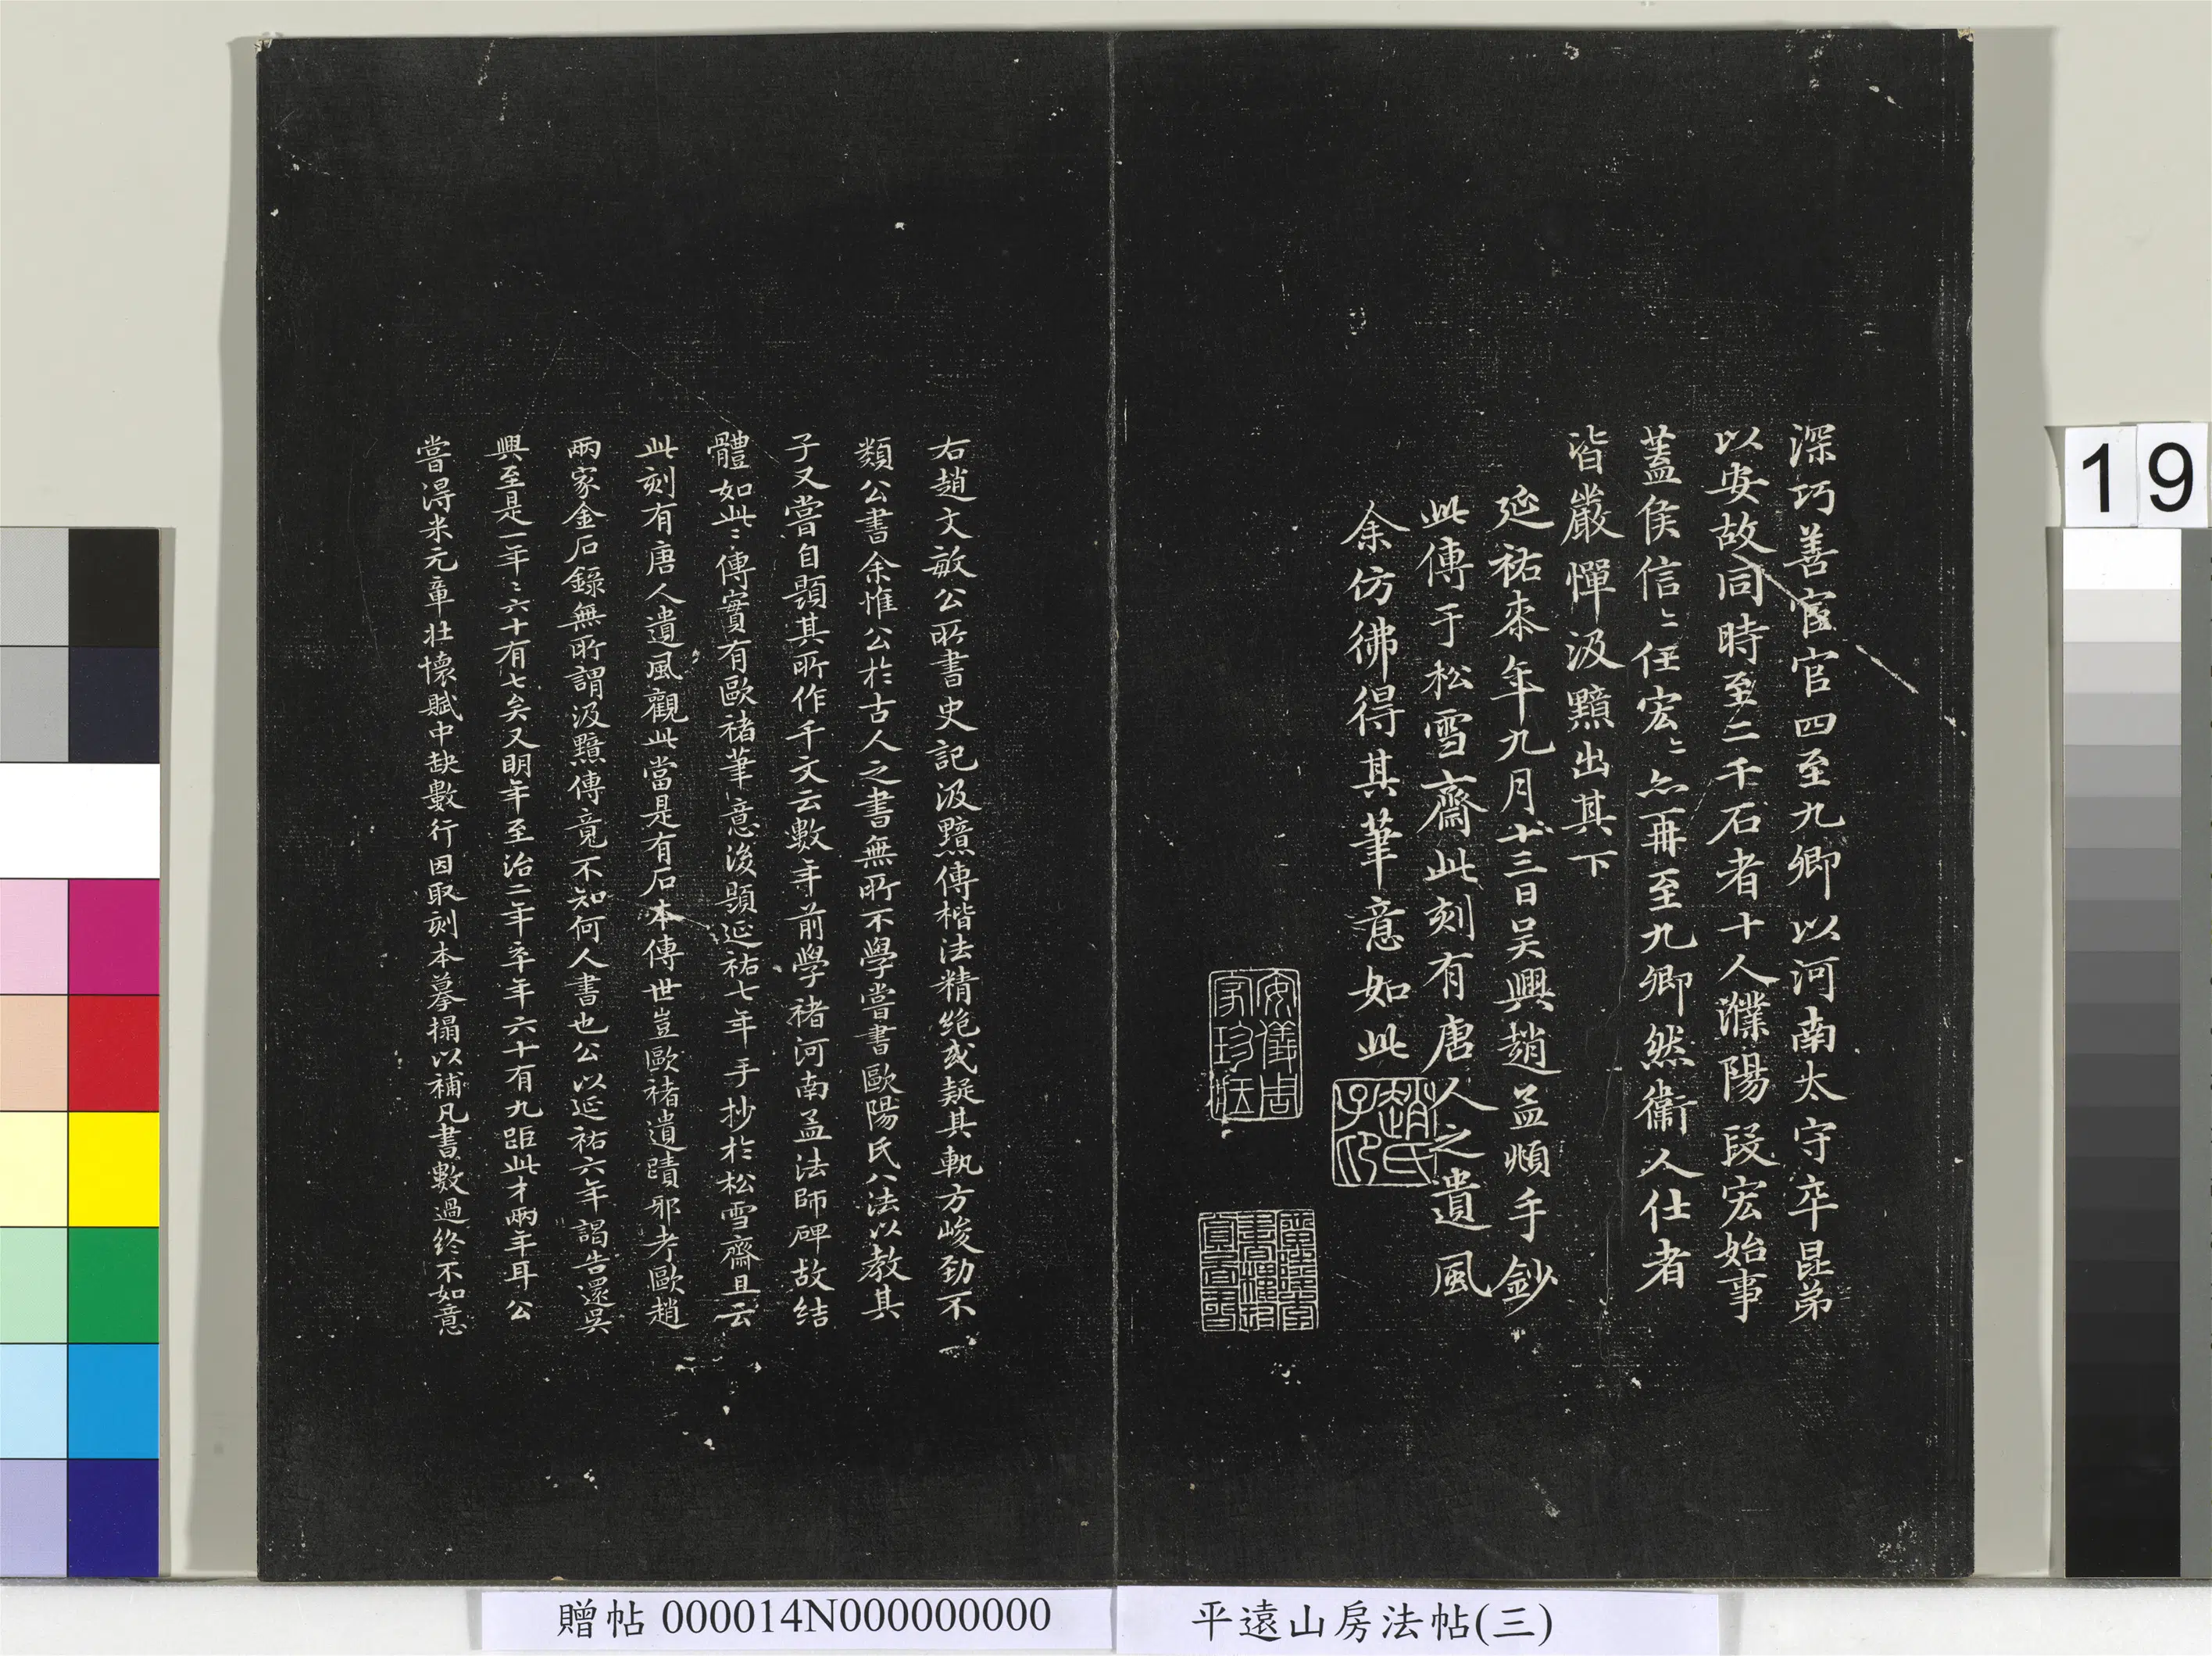 深巧善宦官四至九卿以河南太守卒昆弟
以安故同時至二千石者十人濮陽段宏始事
蓋侯信〻任宏〻亦再至九卿然衞人仕者
皆嚴憚汲黯出其下
延祐柒年九月十三日吴興趙孟頫手鈔
此傳于松雪齋此刻有唐人之遺風
余仿彿得其筆意如此
趙氏子印
安儀周家珍藏
右趙文敏公所書史記汲黯傳楷法精绝或疑其執方峻勁不
類公書余惟公於古人之書無所不學嘗書歐陽氏八法以教其
子又嘗自題其所作千文云數年前學褚河南孟法師碑故结
體如此〻傳實有歐褚筆意後題延祐七年手抄於松雪齋且云
此刻有唐人遺風觀此當是有石本傳世豈歐褚遺蹟邪考歐趙
兩家金石錄無所謂汲黯傳竟不知何人書也公以延祐六年謁告還吳
興至是一年〻六十有七矣又明年至治二年卒年六十有九距此才兩年耳公
嘗得米元章壯懷賦中缺數行因取刻本摹搨以補凡書數過終不如意
19
贈帖 000014N000000000
平遠山房法帖(三)